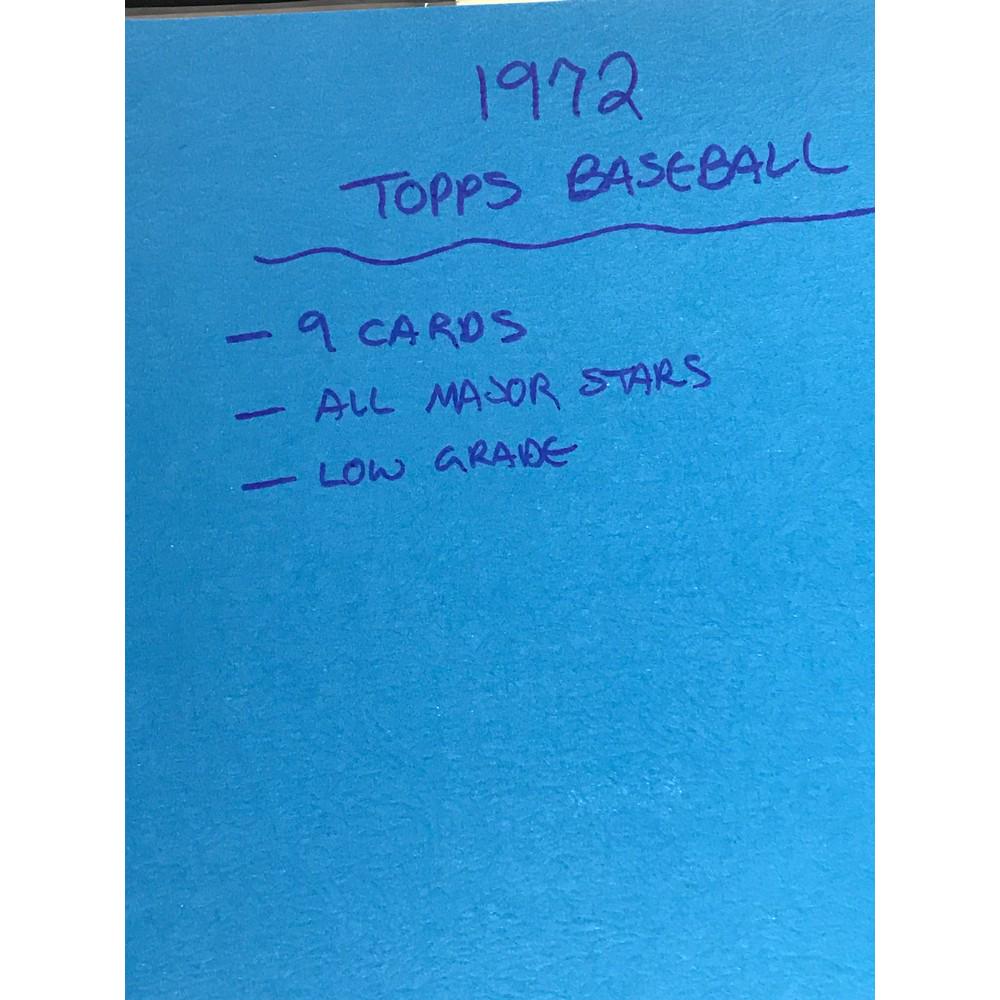 1972
TOPPS BASEBALL
- 9 CARDS
- ALL MAJOR STARS
- LOW GRADE